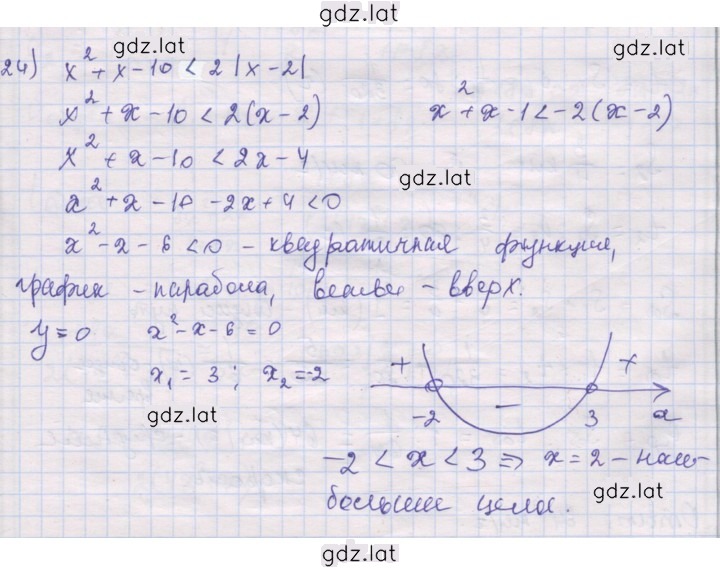 gdz.lat
24) x² + x - 10 < 2 |x - 2|
gdz.lat
gdz.lat
x² + x - 10 < 2(x - 2)
x² + x - 1 < -2(x - 2)
x² + x - 10 < 2x - 4
gdz.lat
x² + x - 10 - 2x + 4 < 0
x² - x - 6 < 0 - квадратичная функция,
график - парабола, ветви - вверх.
y = 0 x² - x - 6 = 0
x₁ = 3 ; x₂ = -2
gdz.lat
+ +
-
-2 3 x
-2 < x < 3 ⇒ x = 2 - наи-
большее целое.
gdz.lat
gdz.lat